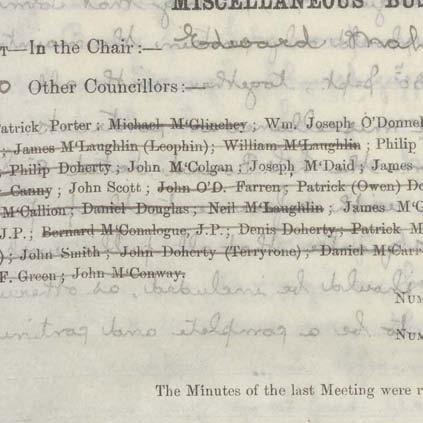 MISCELLANEOUS BUS
T—In the Chair:— Edward
O Other Councillors:—
Patrick Porter; Michael M'Glinchey; Wm. Joseph O'Donnel
; James M'Laughlin (Leophin); William M'Laughlin; Philip
; Philip Doherty; John M'Colgan; Joseph M'Daid; James
Canny; John Scott; John O'D. Farren; Patrick (Owen) Do
M'Callion; Daniel Douglas; Neil M'Laughlin; James M'G
J.P.; Bernard M'Conalogue, J.P.; Denis Doherty; Patrick M
); John Smith; John Doherty (Terryrone); Daniel M'Carr
F. Green; John M'Conway.
NUM
NUM
The Minutes of the last Meeting were r